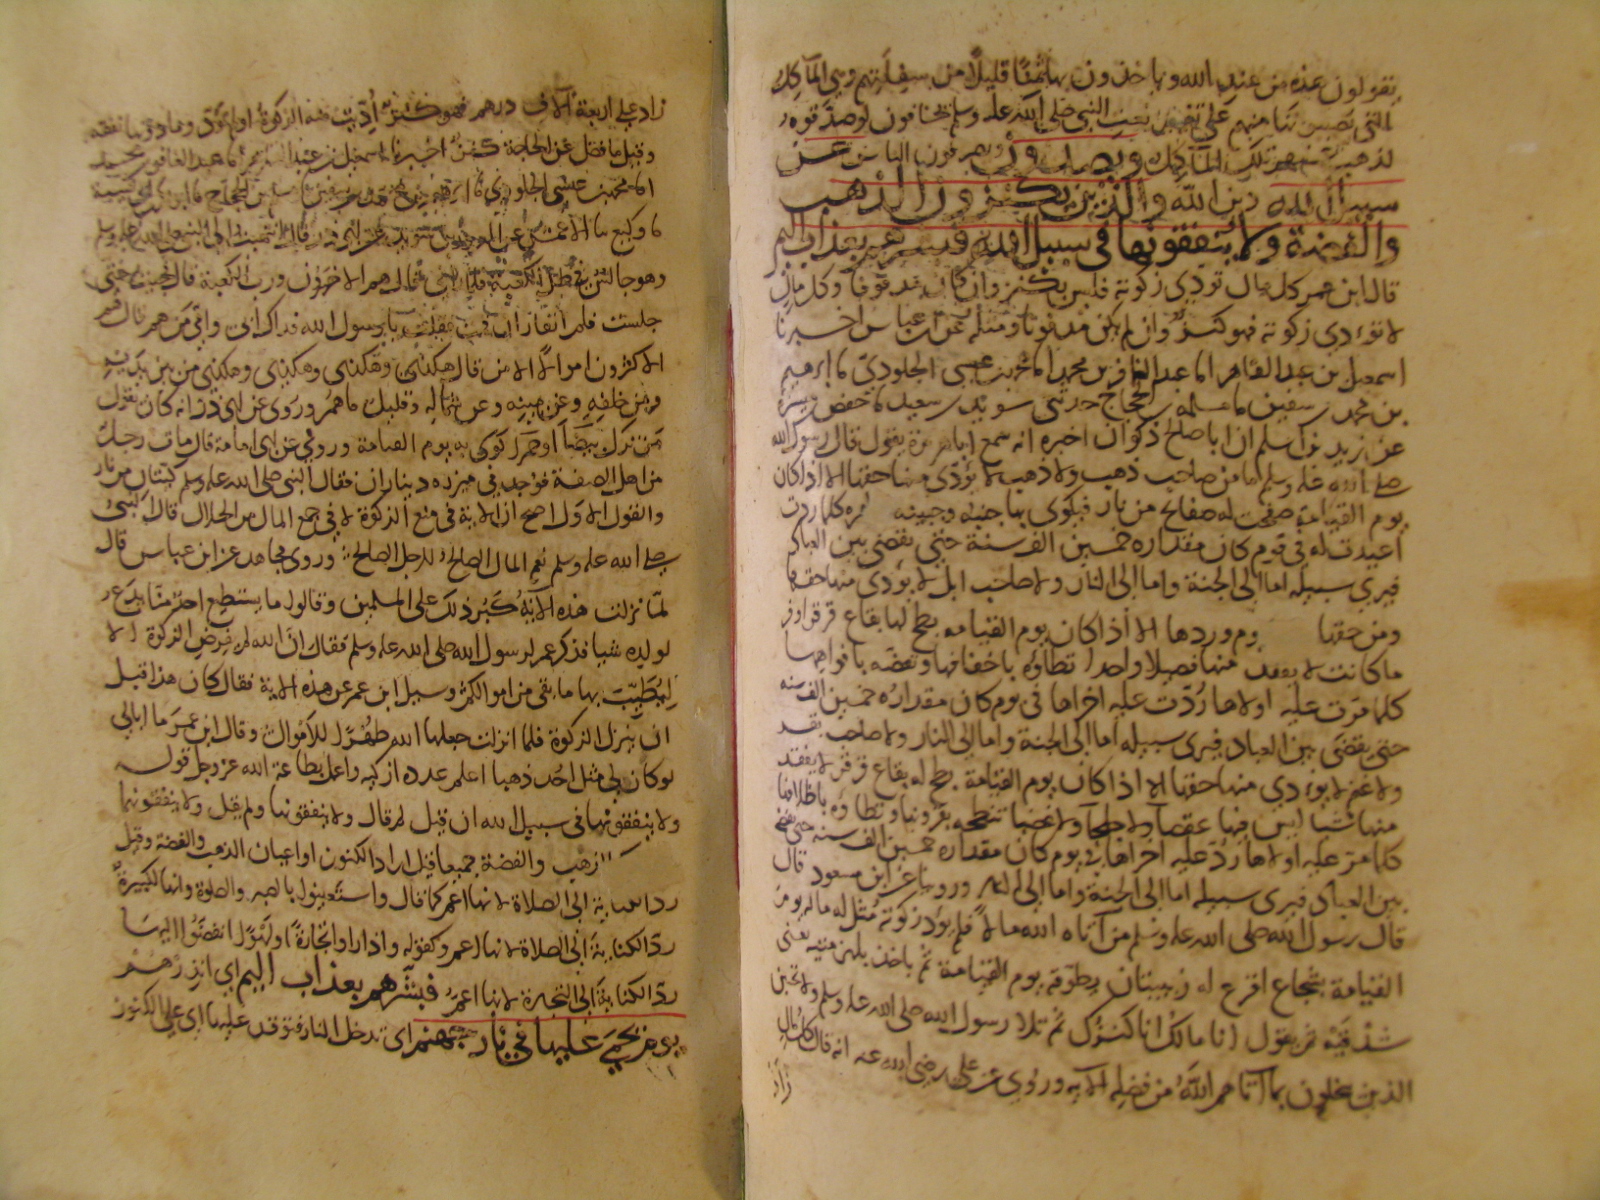 يقولون هذه من عند الله وياخذون بها ثمنا قليلا من سفلتهم وهي المآكل
التي يصيبونها منهم على تغيير نعت النبي صلى الله عليه وسلم يخافون لو صدقوه
لذهبت عنهم تلك المآكل ويصدون ويصرفون الناس عن
سبيل الله دين الله والذين يكنزون الذهب
والفضة ولا ينفقونها في سبيل الله فبشرهم بعذاب اليم
قال ابن عمر كل مال تودي زكوته فليس بكنز وان كان مدفونا وكل مال
لا تودي زكوته فهو كنز وان لم يكن مدفونا ومثله عن ابن عباس اخبرنا
اسمعيل بن عبد القاهر انا عبد الغافر بن محمد انا محمد بن عيسى الجلودي نا ابرهيم
بن محمد بن سفين نا مسلم بن الحجاج حدثني سويد بن سعيد نا حفص بن ميسرة
عن زيد بن اسلم ان ابا صالح ذكوان اخبره انه سمع ابا هريرة يقول قال رسول الله
صلى الله عليه وسلم ما من صاحب ذهب ولا فضة لا يؤدي منها حقها الا اذا كان
يوم القيامة صفحت له صفائح من نار فيكوى بها جنبه وجبينه وظهره كلما ردت
اعيدت له في يوم كان مقداره خمسين الف سنة حتى يقضى بين العباد
فيرى سبيله اما الى الجنة واما الى النار ولا صاحب ابل لا يؤدي منها حقها
ومن حقها يوم وردها الا اذا كان يوم القيامة بطح لها بقاع قرقر اوفر
ما كانت لا يفقد منها فصيلا واحدا تطاؤه باخفافها وتعضه بافواهها
كلما مرت عليه اولاها ردت عليه اخراها في يوم كان مقداره خمسين الف سنه
حتى يقضى بين العباد فيرى سبيله اما الى الجنة واما الى النار ولا صاحب بقر
ولا غنم لا يودي منها حقها الا اذا كان يوم القيامة بطح له بقاع قرقر لا يفقد
منها شيا ليس فيها عقصا ولا جلحا ولا عضبا تنطحه بقرونها وتطاوه باظلافها
كلما مر عليه اولاها رد عليه اخراها في يوم كان مقداره خمسين الف سنه حتى يقضى
بين العباد فيرى سبيله اما الى الجنة واما الى النار وروينا عن ابن مسعود قال
قال رسول الله صلى الله عليه وسلم من آتاه الله مالا فلم يؤد زكوته مثل له ماله يوم
القيامة شجاع اقرع له زبيبتان يطوقه يوم القيامة ثم ياخذ بلهزمتيه يعنى
شدقيه ثم يقول انا مالك انا كنزك ثم تلا رسول الله صلى الله عليه وسلم ولا تحسبن
الذين يبخلون بما آتاهم الله من فضله الايه وروي عن علي رضي الله عنه انه قال كل مال
زاد
زاد على اربعة آلاف درهم فهو كنز أديت منه الزكوة او لم تؤد وما دونها نفقة
وقيل ما فضل عن الحاجة كنز اخبرنا اسمعيل بن عبد القاهر نا عبد الغافر بن محمد
انا محمد بن عيسى الجلودي نا ابرهيم بن محمد بن سفين نا مسلم بن الحجاج نا ابو بكر بن ابي شيبة
نا وكيع نا الاعمش عن المعرور بن سويد عن ابي ذر قال انتهيت الى النبي صلى الله عليه وسلم
وهو جالس في ظل الكعبة فلما رآني قال هم الاخسرون ورب الكعبة قال فجيت حتى
جلست فلم اتقار ان قمت فقلت يا رسول الله فداك ابي وامي من هم قال هم
الاكثرون اموالا الا من قال هكذى وهكذى وهكذى وهكذى من بين يديه
ومن خلفه وعن يمينه وعن شماله وقليل ما هم وروى عن ابي ذر انه كان يقول
من ترك بيضا او حمرا كوي به يوم القيامة وروي عن ابي امامة قال مات رجل
من اهل الصفة فوجد في ميزره ديناران فقال النبي صلى الله عليه وسلم كيتان من نار
والقول الاول اصح ان الاية في منع الزكوة لا في جمع المال من الحلال قال النبي
صلى الله عليه وسلم نعم المال الصالح للرجل الصالح وروى مجاهد عن ابن عباس قال
لما نزلت هذه الآية كبر ذلك على المسلمين وقالوا ما يستطيع احد منا يدع
لولده شيا فذكر عمر لرسول الله صلى الله عليه وسلم فقال ان الله لم يفرض الزكوة الا
ليطيب بها ما بقي من اموالكم وسيل ابن عمر عن هذه الاية فقال كان هذا قبل
ان ينزل الزكوة فلما انزلت جعلها الله طهرا للاموال وقال ابن عمر ما ابالي
لو كان لي مثل احد ذهبا اعلم عدده ازكيه واعمل بطاعة الله عز وجل قوله
ولا ينفقونها في سبيل الله ان قيل لم قال ولا ينفقونها ولم يقل ولا ينفقونهما
الذهب والفضة جميعا قيل اراد الكنوز او اعيان الذهب والفضة وقيل
رد الكناية الى الصلاة لانها اعم كما قال واستعينوا بالصبر والصلوة وانها لكبيرة
رد الكناية الى الصلاة لانها اعم وكقوله واذا راوا تجارة او لهوا انفضوا اليها
رد الكناية الى التجارة لانها اعم فبشرهم بعذاب اليم اي انذرهم
يوم يحمى عليها في نار جهنم اي تدخل النار فتوقد عليها اي على الكنوز